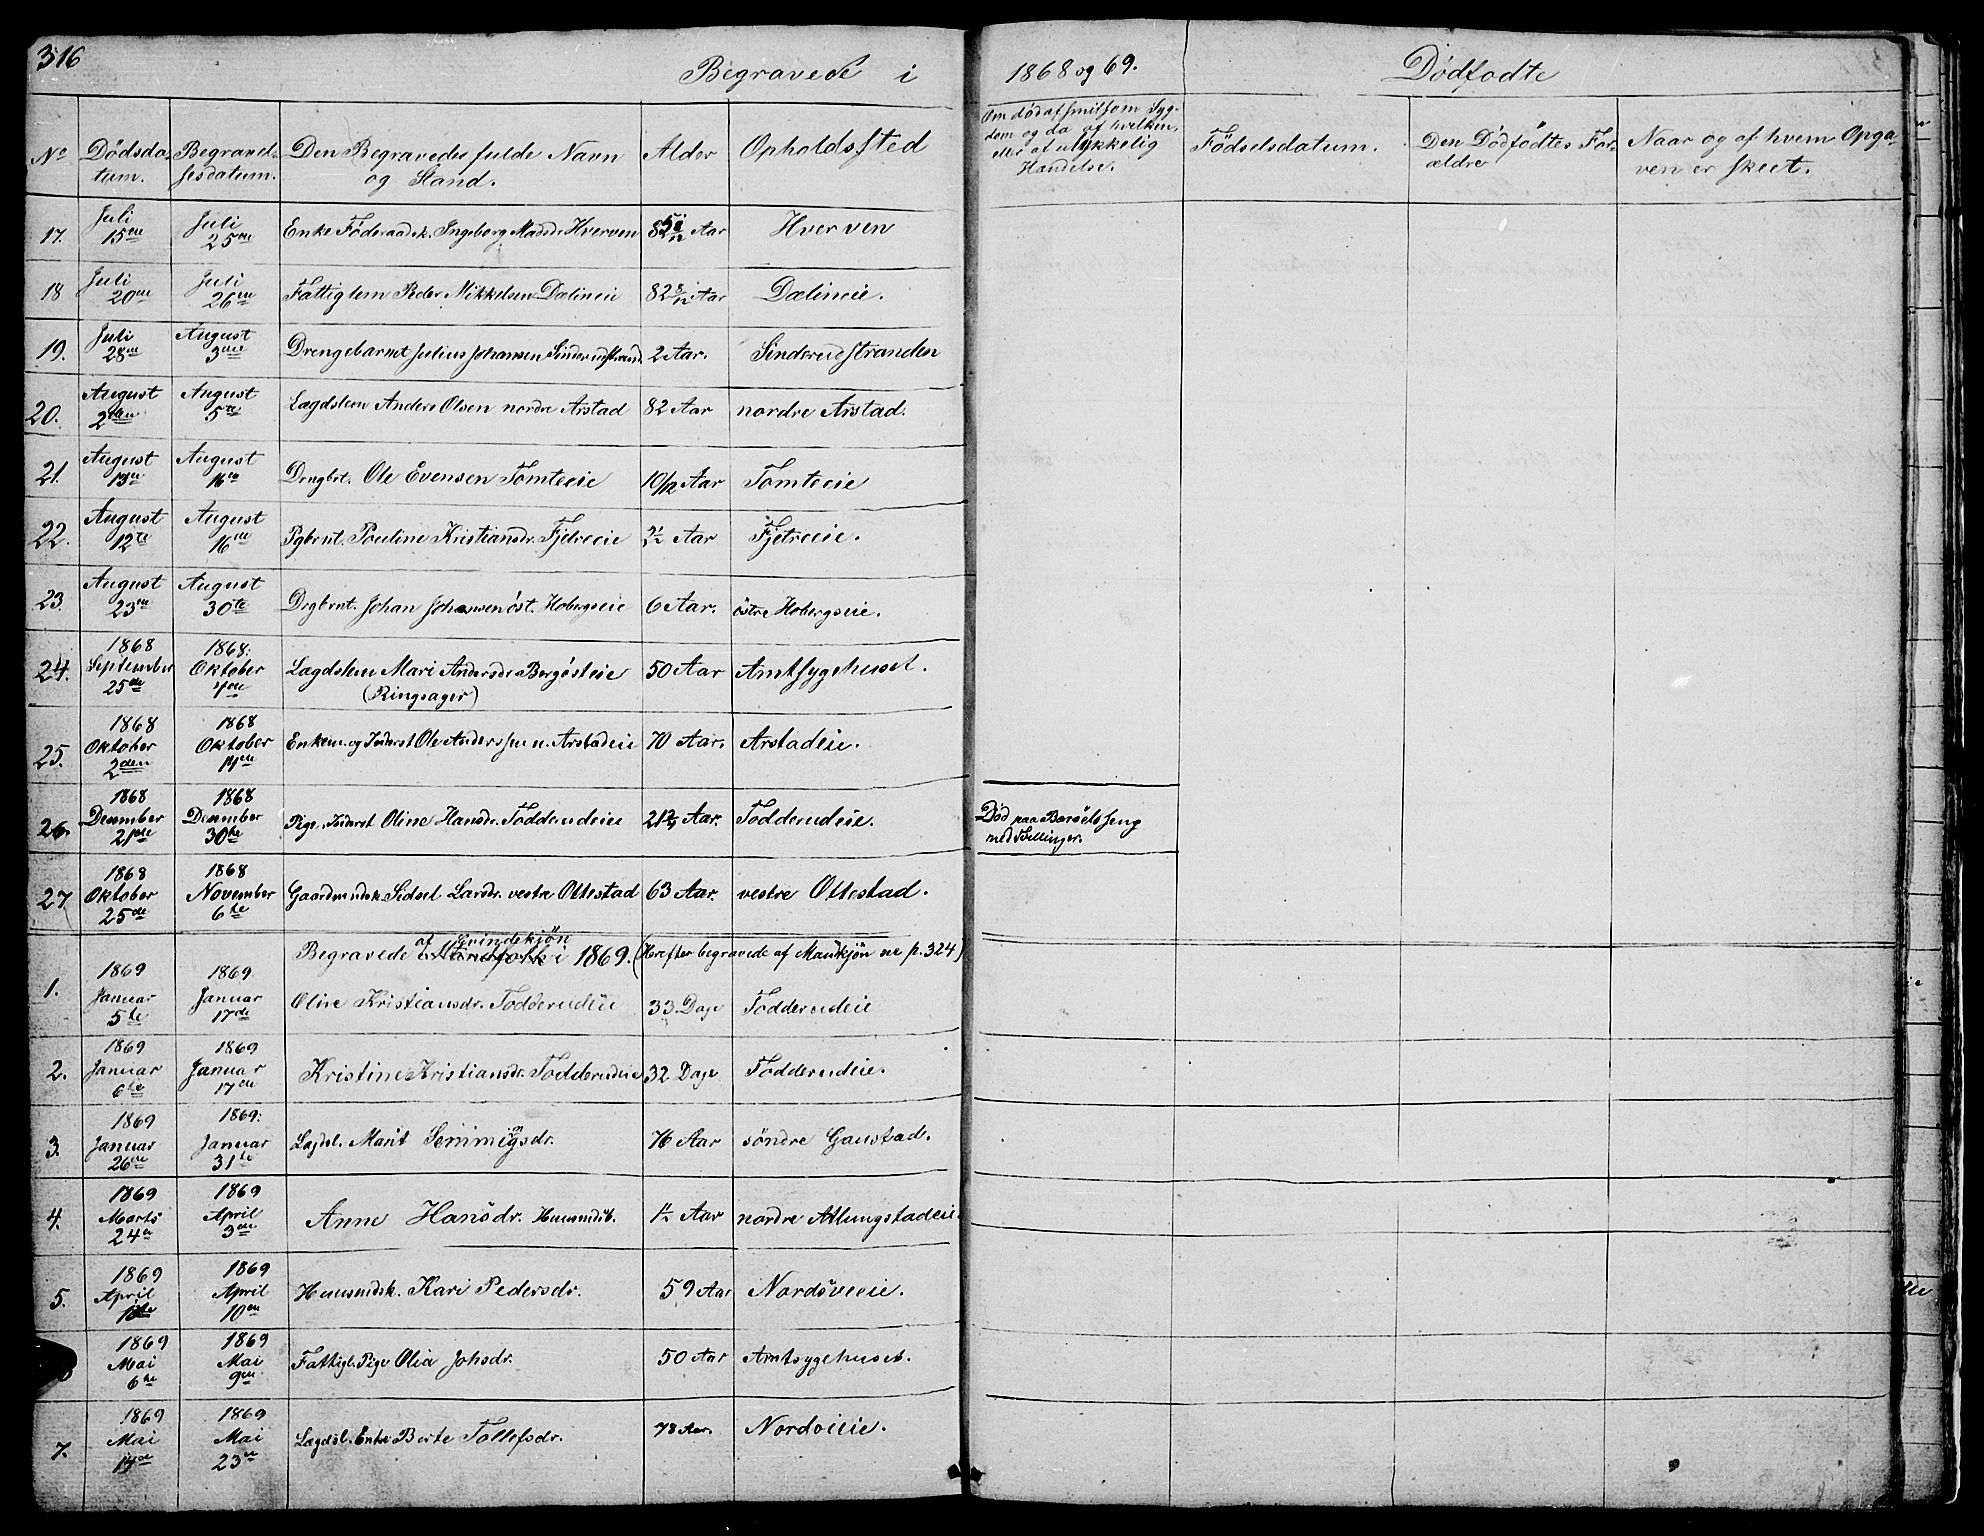 316
Begravede i 1868 og 69.
Dødfødte
No Dødsdatum. Begravelsesdatum. Den Begravedes fulde Navn og Stand. Alder Opholdssted Om død af smitsom Sygdom og da af hvilken, eller et ulykkelig Hændelse. Fødselsdatum. Den Dødfødtes Forældre Naar og af hvem Opgaven er skeet.
17. Juli 15en Juli 25en Enke Föderaadsk. Ingeborg Madsdr Hverven 82 Aar Hverven
18 Juli 20en Juli 26en Fattiglem Peder Mikkelsen Dælineie 82 8/12 Aar Dælineie.
19. Juli 28en August 3die Drengebarnet Julius Johansen Sinderudstrand. 2 Aar. Sinderudstranden
20. August 2den August 5te Lægdslem Anders Olsen nordre Arstad 82 Aar nordre Arstad.
21. August 13en August 16en Drngbrt. Ole Evensen Tomteeie 10/12 Aar Tomteeie
22. August 12te August 16en Pgbrnt. Pauline Kristiansdr. Fjetreeie 1/2 Aar Fjetreeie.
23. August 23en August 30te Drgbrnt. Johan Johansen öst. Hobergseie 6 Aar. östre Hobergseie.
24. 1868 September 25de 1868. Oktober 4de Lægdslem Mari Andersdr Bergösteie (Ringsager) 50 Aar Amtsygehuset.
25. 1868 Oktober 2den 1868 Oktober 11te Enkem. og Inderst Ole Anderssen n. Arstadeie 70 Aar. Arstadeie.
26. 1868 December 21de 1868 December 30te Pige, Inderst Oline Hansdr. Todderudeie 21 Aar. Todderudeie. Död paa Barselsseng med Tvillinger.
27 1868 Oktober 25de 1868 November 6te Gaardmandsk. Sidsel Larsdr. vestre Ottestad 63 Aar. vestre Ottestad.
Begravede af Qvindekjøn i 1869. (Herefter begravede af Mandkjön se p. 324)
1. 1869 Januar 5te 1869. Januar 17de Oline Kristiansdr. Todderudeie 33 Dage Todderudeie
2. 1869 Januar 6te 1869 Januar 17en Kristine Kristiansdr. Todderudeie 32 Dage Todderudeie.
3. 1869 Januar 26de 1869. Januar 31te Lægdsl. Marit Semmingsdr. 76 Aar söndre Gaustad.
4. 1869 Marts 24de 1869 April 3die Anne Hansdr. Huusmdsb. 1/2 Aar nordre Atlungstadeie.
5. 1869 April 1ste 1869 April 10en Huusmdsk. Kari Pedersdr. 59 Aar Nordsveeie.
1869 Mai 6te 1869 Mai 9en Fattigl. Pige Olia Johsdr. 50 Aar Amtsygehuset.
7. 1869 Mai 14de 1869 Mai 23de Lægdsl. Enke Berte Tollefsdr. 78 Aar. Nordvieie.